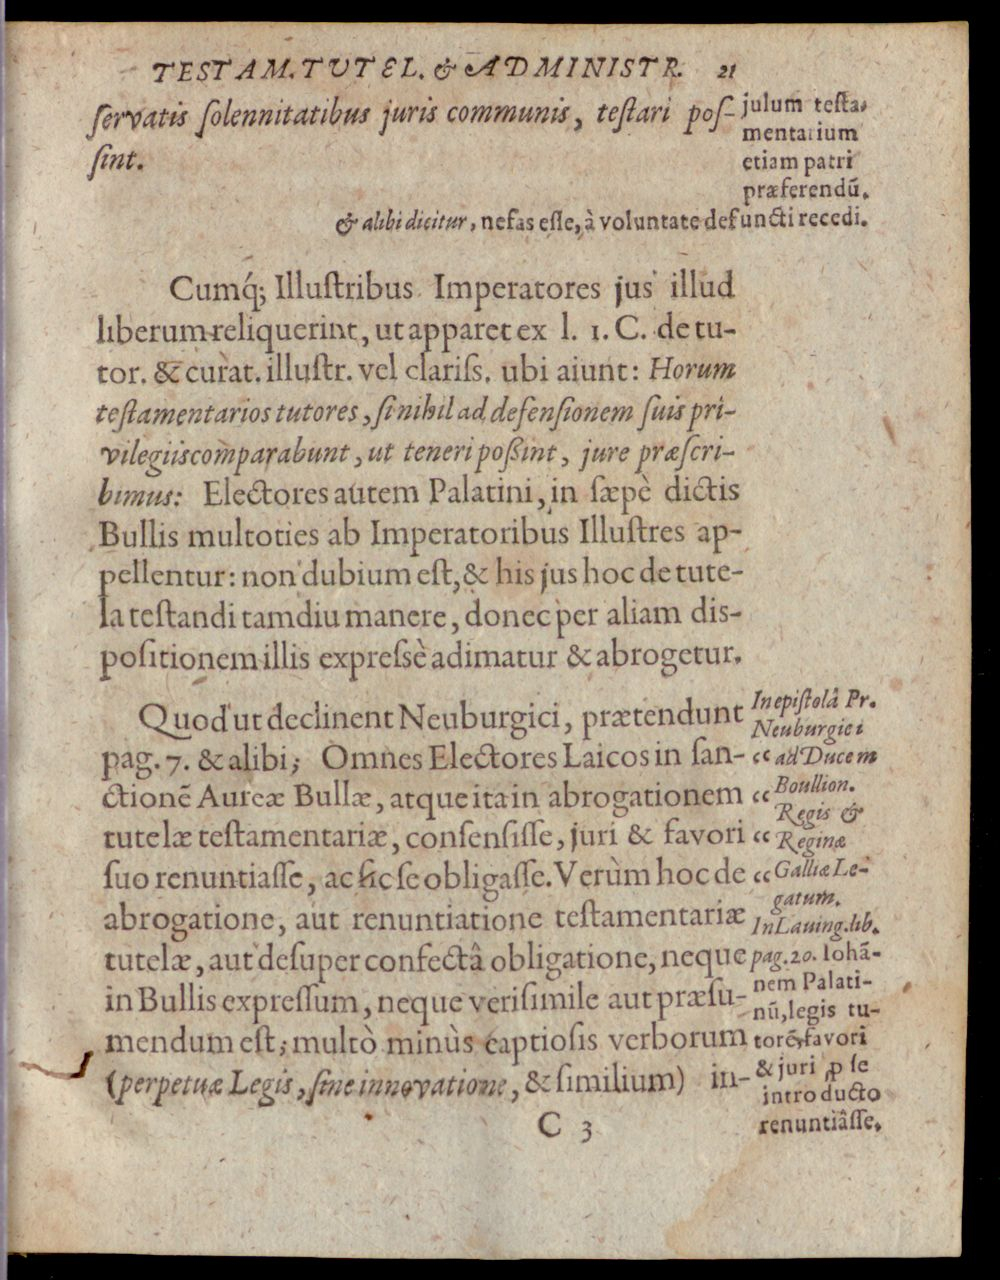 TESTAM. TUTEL. & ADMINISTR. 21
ſervatis ſolennitatibus juris communis, teſtari poſ-
ſint.
julum teſta-
mentarium
etiam patri
præferendū.
& alibi dicitur, nefas eſſe, à voluntate defuncti recedi.
Cumq́; Illuſtribus Imperatores jus illud
liberum reliquerint, ut apparet ex l. 1. C. de tu-
tor. & curat. illuſtr. vel clariſs. ubi aiunt: Horum
teſtamentarios tutores, ſi nihil ad defenſionem ſuis pri-
vilegiis comparabunt, ut teneri poßint, jure præſcri-
bimus: Electores autem Palatini, in ſæpè dictis
Bullis multoties ab Imperatoribus Illuſtres ap-
pellentur: non dubium eſt, & his jus hoc de tute-
la teſtandi tamdiu manere, donec per aliam dis-
poſitionem illis expreſsè adimatur & abrogetur.
Quod ut declinent Neuburgici, prætendunt
pag. 7. & alibi; Omnes Electores Laicos in ſan-
ctionē Aureæ Bullæ, atque ita in abrogationem
tutelæ teſtamentariæ, conſenſiſſe, juri & favori
ſuo renuntiaſſe, ac ſic ſe obligaſſe. Verùm hoc de
abrogatione, aut renuntiatione teſtamentariæ
tutelæ, aut deſuper confectâ obligatione, neque
in Bullis expreſſum, neque veriſimile aut præſu-
mendum eſt; multò minùs captioſis verborum
(perpetuæ Legis, ſine innovatione, & ſimilium) in-
In epiſtolâ Pr.
Neuburgici
“ ad Ducem
“ Boullion.
Regis &
“ Reginæ
“ Galliæ Le-
gatum.
In Lauing. lib.
pag. 20. Iohā-
nem Palati-
nū, legis tu-
torē, favori
& juri ꝓ ſe
introducto
renuntiâſſe.
C 3